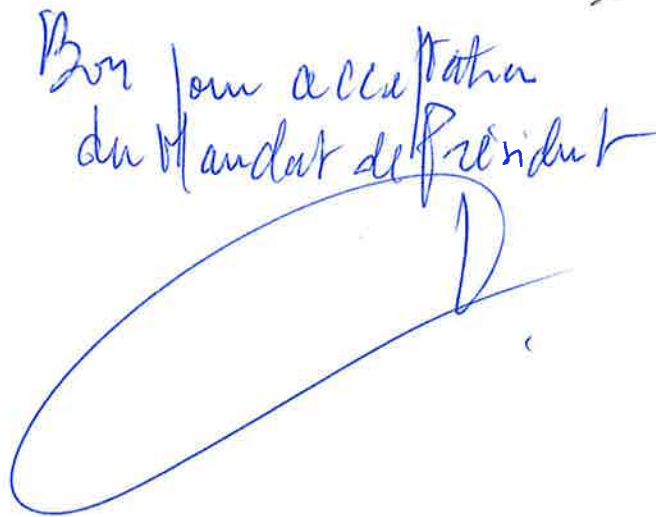 Bon pour acceptation
du Mandat de Président